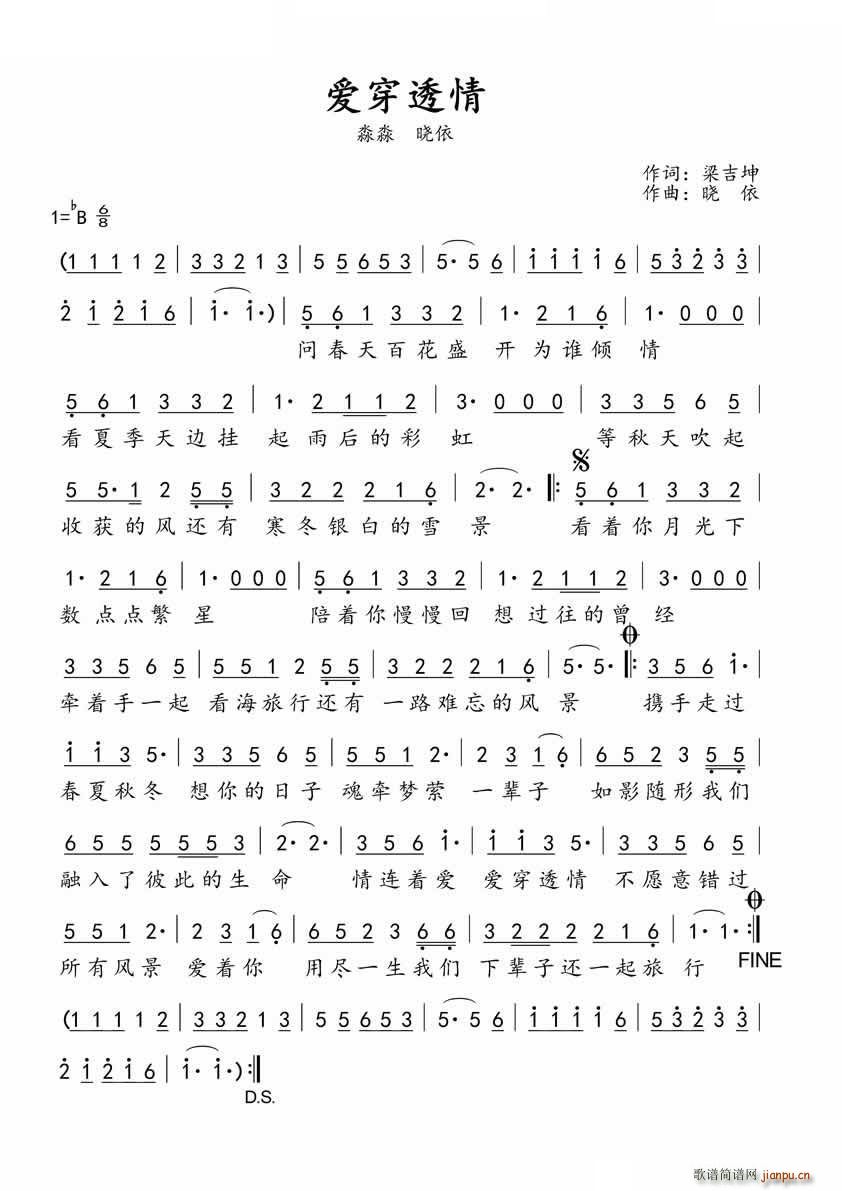 爱穿透情
淼淼 晓依
作词：梁吉坤
作曲：晓 依
1=♭B 6/8
(1 1 1 1 2 | 3 3 2 1 3 | 5 5 6 5 3 | 5· 5 6 | i i i i 6 | 5 3 2 3 3 |
2 i 2 i 6 | i· i·) | 5 6 1 3 3 2 | 1· 2 1 6 | 1· 0 0 0 |
问春天百花盛 开为谁倾 情
5 6 1 3 3 2 | 1· 2 1 1 2 | 3· 0 0 0 | 3 3 5 6 5 |
看夏季天边挂 起雨后的彩 虹 等秋天吹起
5 5· 1 2 5 5 | 3 2 2 2 1 6 | 2· 2· ‖: 5 6 1 3 3 2 |
收获的风还有 寒冬银白的雪 景 看着你月光下
1· 2 1 6 | 1· 0 0 0 | 5 6 1 3 3 2 | 1· 2 1 1 2 | 3· 0 0 0 |
数点点繁 星 陪着你慢慢回 想过往的曾 经
3 3 5 6 5 | 5 5 1 2 5 5 | 3 2 2 2 1 6 | 5· 5· ‖: 3 5 6 i· |
牵着手一起 看海旅行还有 一路难忘的风 景 携手走过
i i 3 5· | 3 3 5 6 5 | 5 5 1 2· | 2 3 1 6 | 6 5 2 3 5 5 |
春夏秋冬 想你的日子 魂牵梦萦 一辈子 如影随形我们
6 5 5 5 5 5 3 | 2· 2· | 3 5 6 i· | i i 3 5· | 3 3 5 6 5 |
融入了彼此的生 命 情连着爱 爱穿透情 不愿意错过
5 5 1 2· | 2 3 1 6 | 6 5 2 3 6 6 | 3 2 2 2 2 1 6 | 1· 1· :‖
所有风景 爱着你 用尽一生我们 下辈子还一起旅 行 FINE
(1 1 1 1 2 | 3 3 2 1 3 | 5 5 6 5 3 | 5· 5 6 | i i i i 6 | 5 3 2 3 3 |
2 i 2 i 6 | i· i·) :‖
D.S.
歌谱简谱网 jianpu.cn